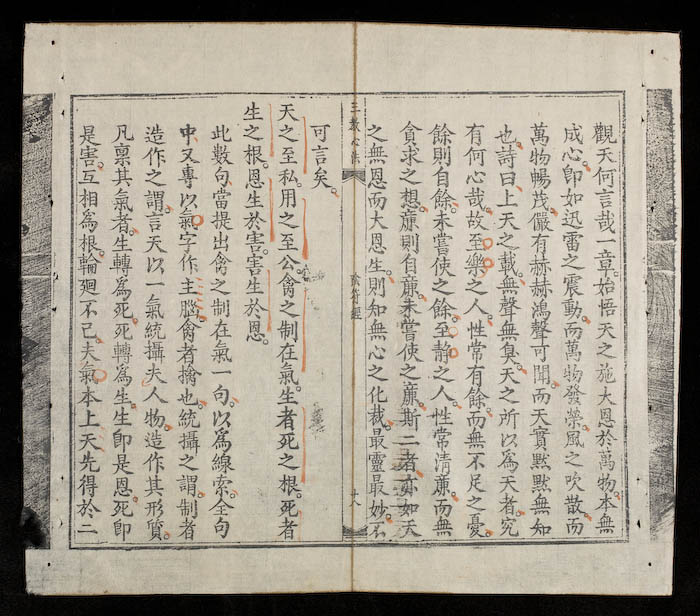 觀天何言哉一章。始悟天之施大恩於萬物。本無
成心。卽如迅雷之震動。而萬物發榮。風之吹散。而
萬物暢茂。儼有赫赫鴻聲可聞。而天實默默無知
也。詩曰。上天之載。無聲無臭。天之所以爲天者。究
有何心哉。故至樂之人。性常有餘。而無不足之憂。
餘則自餘。未嘗使之餘。至靜之人。性常清廉。而無
貪求之想。廉則自廉。未嘗使之廉。斯二者。亦如天
之無恩而大恩生。則知無心之化裁。最靈最妙。不
三教心法
陰符經
十八
可言矣。
天之至私。用之至公。禽之制在氣。生者死之根。死者
生之根。恩生於害。害生於恩。
此數句當提出禽之制在氣一句。以爲線索。全句
中又專以氣字作主腦。禽者擒也。統攝之謂。制者
造作之謂。言天以一氣統攝夫人物。造作其形質。
凡稟其氣者。生轉爲死。死轉爲生。生卽是恩。死卽
是害。互相爲根。輪迴不已。夫氣本上天先得於二